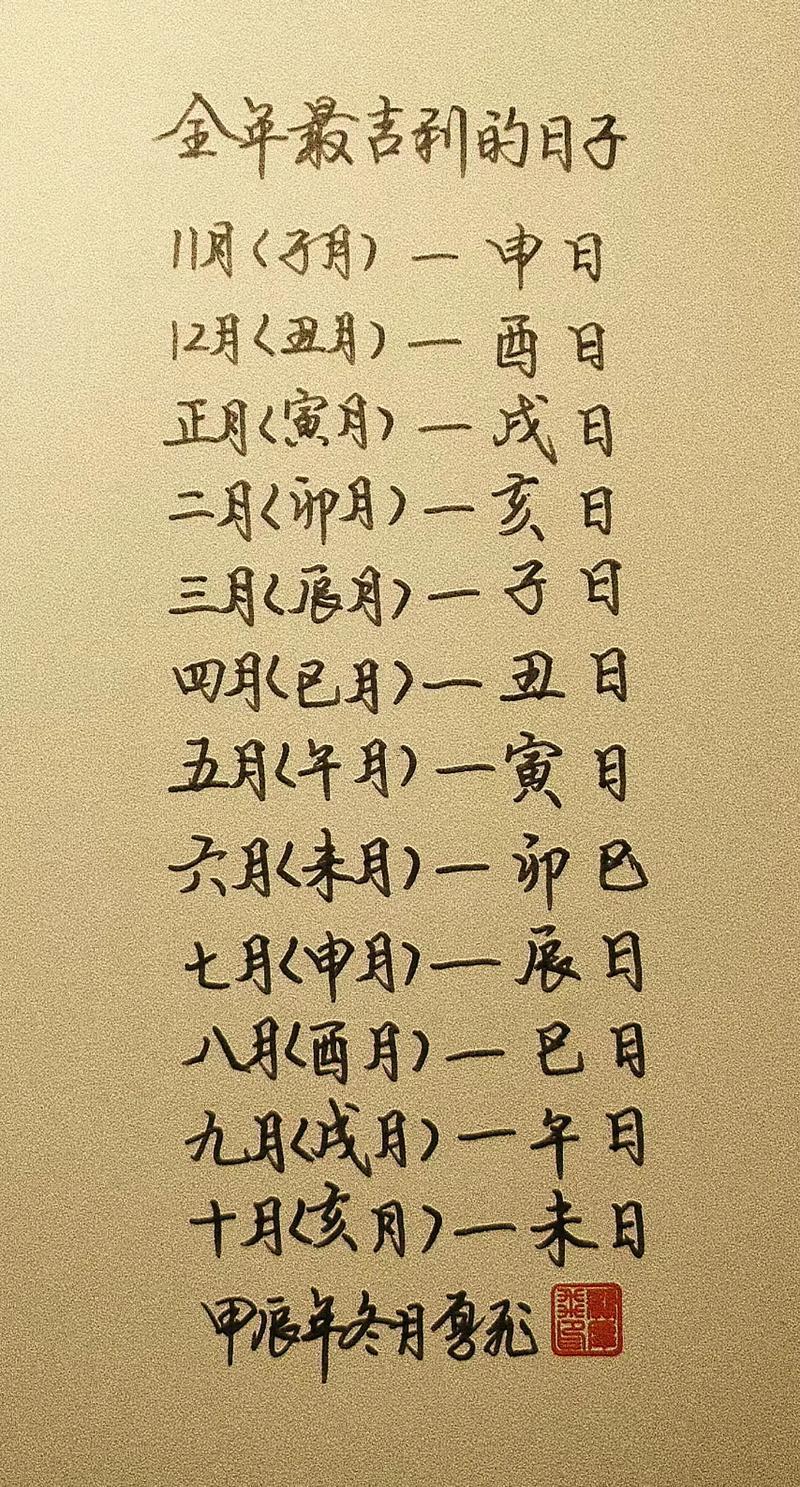 全年最吉利的日子
11月（子月）— 申日
12月（丑月）— 酉日
正月（寅月）— 戌日
二月（卯月）— 亥日
三月（辰月）— 子日
四月（巳月）— 丑日
五月（午月）— 寅日
六月（未月）— 卯巳
七月（申月）— 辰日
八月（酉月）— 巳日
九月（戌月）— 午日
十月（亥月）— 未日
甲辰年冬月